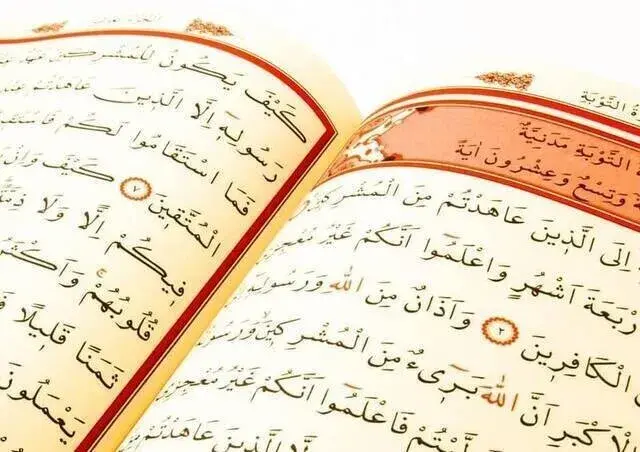 التَّوْبَةِ
التَّوْبَةِ مَدَنِيَّةٌ
وَتِسْعٌ وَعِشْرُونَ اٰيَةً
اِلَى الَّذ۪ينَ عَاهَدْتُمْ مِنَ الْمُشْرِك۪ينَ
اَشْهُرٍ وَاعْلَمُٓوا اَنَّكُمْ غَيْرُ
الْكَافِر۪ينَ ٢ وَاَذَانٌ مِنَ اللّٰهِ وَرَسُولِه۪ٓ
اَنَّ اللّٰهَ بَر۪ٓيءٌ مِنَ الْمُشْرِك۪ينَ
فَاعْلَمُٓوا اَنَّكُمْ غَيْرُ
الَّذ۪ينَ عَاهَدْتُمْ
كَيْفَ يَكُونُ لِلْمُشْرِك۪ينَ
رَسُولِه۪ٓ اِلَّا الَّذ۪ينَ عَاهَدْتُمْ عِنْدَ
فَمَا اسْتَقَامُوا لَكُمْ
الْمُتَّق۪ينَ ٧ كَيْفَ وَاِنْ
ف۪يكُمْ اِلًّا وَلَا ذِمَّةً
قُلُوبُهُمْۚ
ثَمَنًا قَل۪يلًا
يَعْمَلُونَ